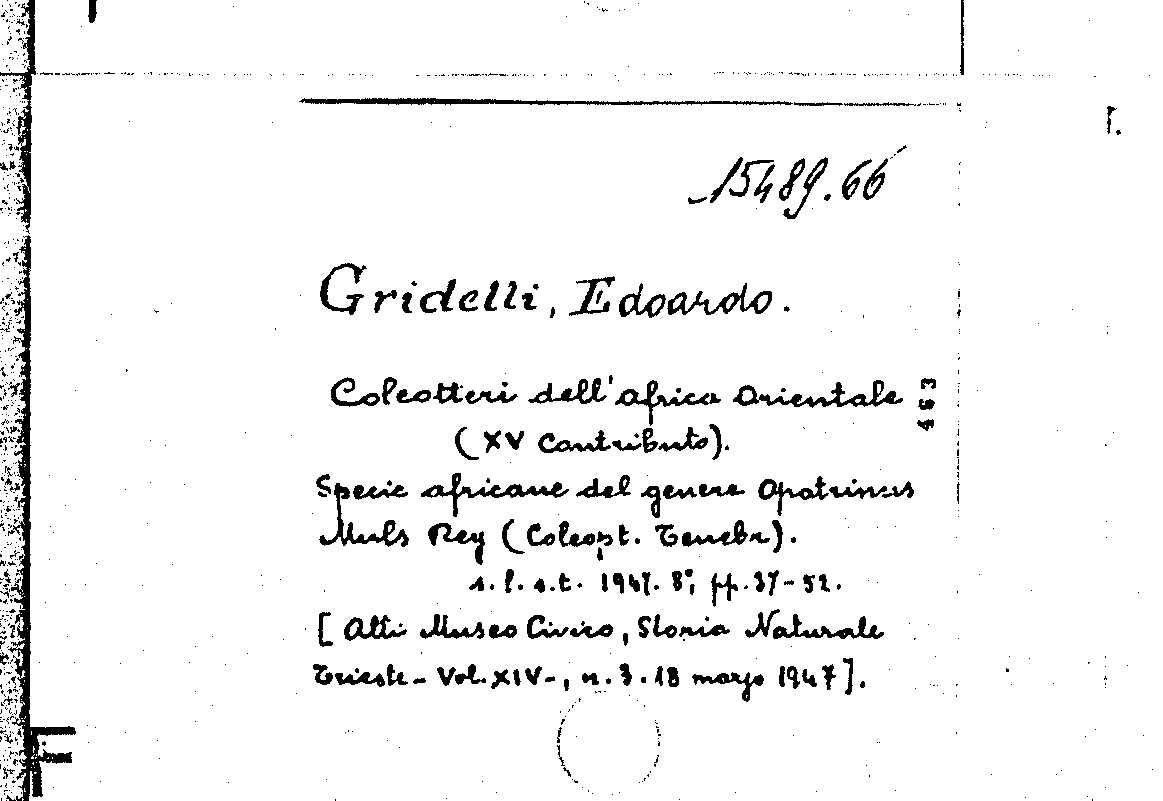 15489.66
Gridelli, Edoardo.
Coleotteri dell'africa Orientale
463
(XV Contributo).
Specie africane del genere Opatrinus
Muls Rey (Coleopt. Tenebr).
s. l. s. t. 1947. 8°, pp. 37-52.
[Atti Museo Civico, Storia Naturale
Trieste - Vol. XIV -, n. 3. 18 marzo 1947].